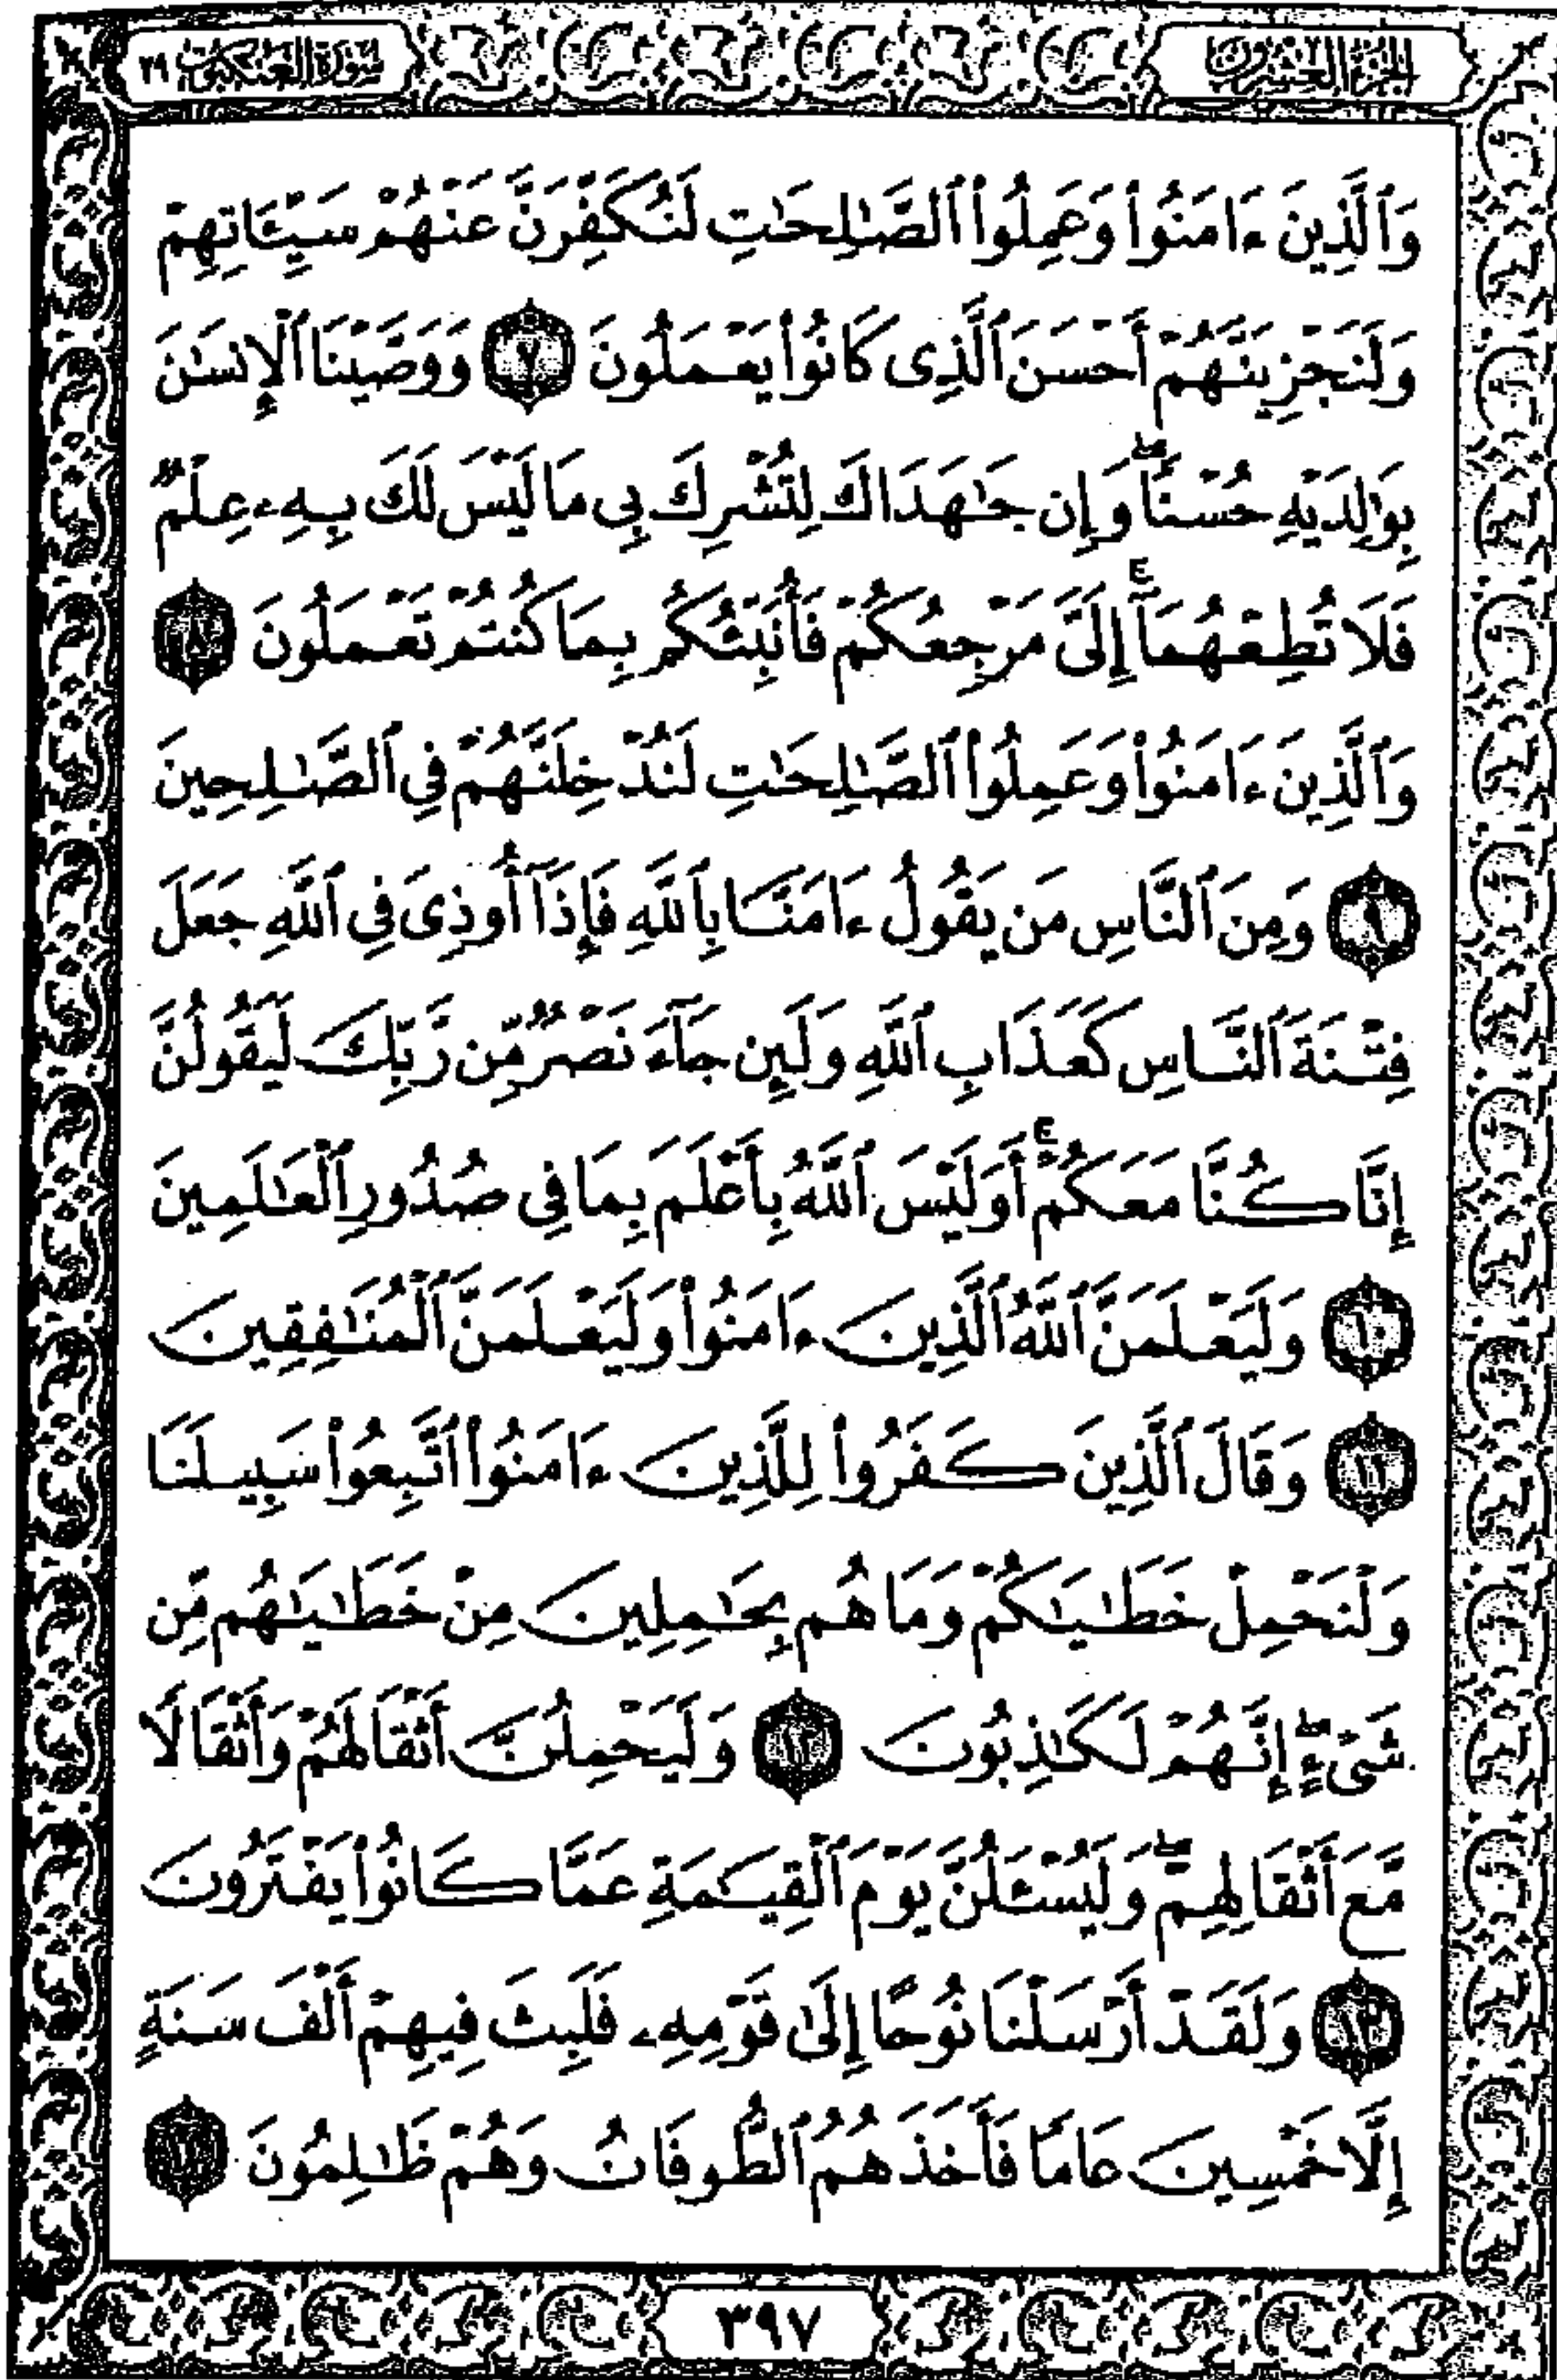 الجزء العشرون
سورة العنكبوت ٢٩
وَٱلَّذِينَ ءَامَنُوا۟ وَعَمِلُوا۟ ٱلصَّٰلِحَٰتِ لَنُكَفِّرَنَّ عَنْهُمْ سَيِّـَٔاتِهِمْ
وَلَنَجْزِيَنَّهُمْ أَحْسَنَ ٱلَّذِى كَانُوا۟ يَعْمَلُونَ ٧ وَوَصَّيْنَا ٱلْإِنسَٰنَ
بِوَٰلِدَيْهِ حُسْنًا ۖ وَإِن جَٰهَدَاكَ لِتُشْرِكَ بِى مَا لَيْسَ لَكَ بِهِۦ عِلْمٌ
فَلَا تُطِعْهُمَآ ۚ إِلَىَّ مَرْجِعُكُمْ فَأُنَبِّئُكُم بِمَا كُنتُمْ تَعْمَلُونَ ٨
وَٱلَّذِينَ ءَامَنُوا۟ وَعَمِلُوا۟ ٱلصَّٰلِحَٰتِ لَنُدْخِلَنَّهُمْ فِى ٱلصَّٰلِحِينَ
٩ وَمِنَ ٱلنَّاسِ مَن يَقُولُ ءَامَنَّا بِٱللَّهِ فَإِذَآ أُوذِىَ فِى ٱللَّهِ جَعَلَ
فِتْنَةَ ٱلنَّاسِ كَعَذَابِ ٱللَّهِ وَلَئِن جَآءَ نَصْرٌ مِّن رَّبِّكَ لَيَقُولُنَّ
إِنَّا كُنَّا مَعَكُمْ ۚ أَوَلَيْسَ ٱللَّهُ بِأَعْلَمَ بِمَا فِى صُدُورِ ٱلْعَٰلَمِينَ
١٠ وَلَيَعْلَمَنَّ ٱللَّهُ ٱلَّذِينَ ءَامَنُوا۟ وَلَيَعْلَمَنَّ ٱلْمُنَٰفِقِينَ
١١ وَقَالَ ٱلَّذِينَ كَفَرُوا۟ لِلَّذِينَ ءَامَنُوا۟ ٱتَّبِعُوا۟ سَبِيلَنَا
وَلْنَحْمِلْ خَطَٰيَٰكُمْ وَمَا هُم بِحَٰمِلِينَ مِنْ خَطَٰيَٰهُم مِّن
شَىْءٍ ۖ إِنَّهُمْ لَكَٰذِبُونَ ١٢ وَلَيَحْمِلُنَّ أَثْقَالَهُمْ وَأَثْقَالًا
مَّعَ أَثْقَالِهِمْ ۖ وَلَيُسْـَٔلُنَّ يَوْمَ ٱلْقِيَٰمَةِ عَمَّا كَانُوا۟ يَفْتَرُونَ
١٣ وَلَقَدْ أَرْسَلْنَا نُوحًا إِلَىٰ قَوْمِهِۦ فَلَبِثَ فِيهِمْ أَلْفَ سَنَةٍ
إِلَّا خَمْسِينَ عَامًا فَأَخَذَهُمُ ٱلطُّوفَانُ وَهُمْ ظَٰلِمُونَ ١٤
٣٩٧